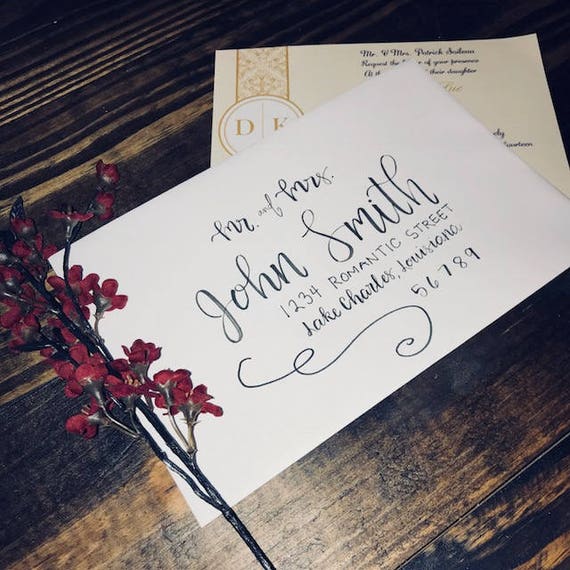 mr. and mrs.
John Smith
1234 ROMANTIC STREET
Lake Charles, Louisiana
56789
D | K
Mr. & Mrs. Patrick
Request the of your presence
At the of their daughter